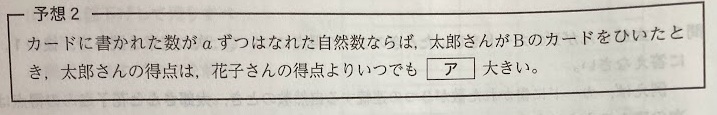 予想2
カードに書かれた数がaずつはなれた自然数ならば，太郎さんがBのカードをひいたと
き，太郎さんの得点は，花子さんの得点よりいつでも ア 大きい。